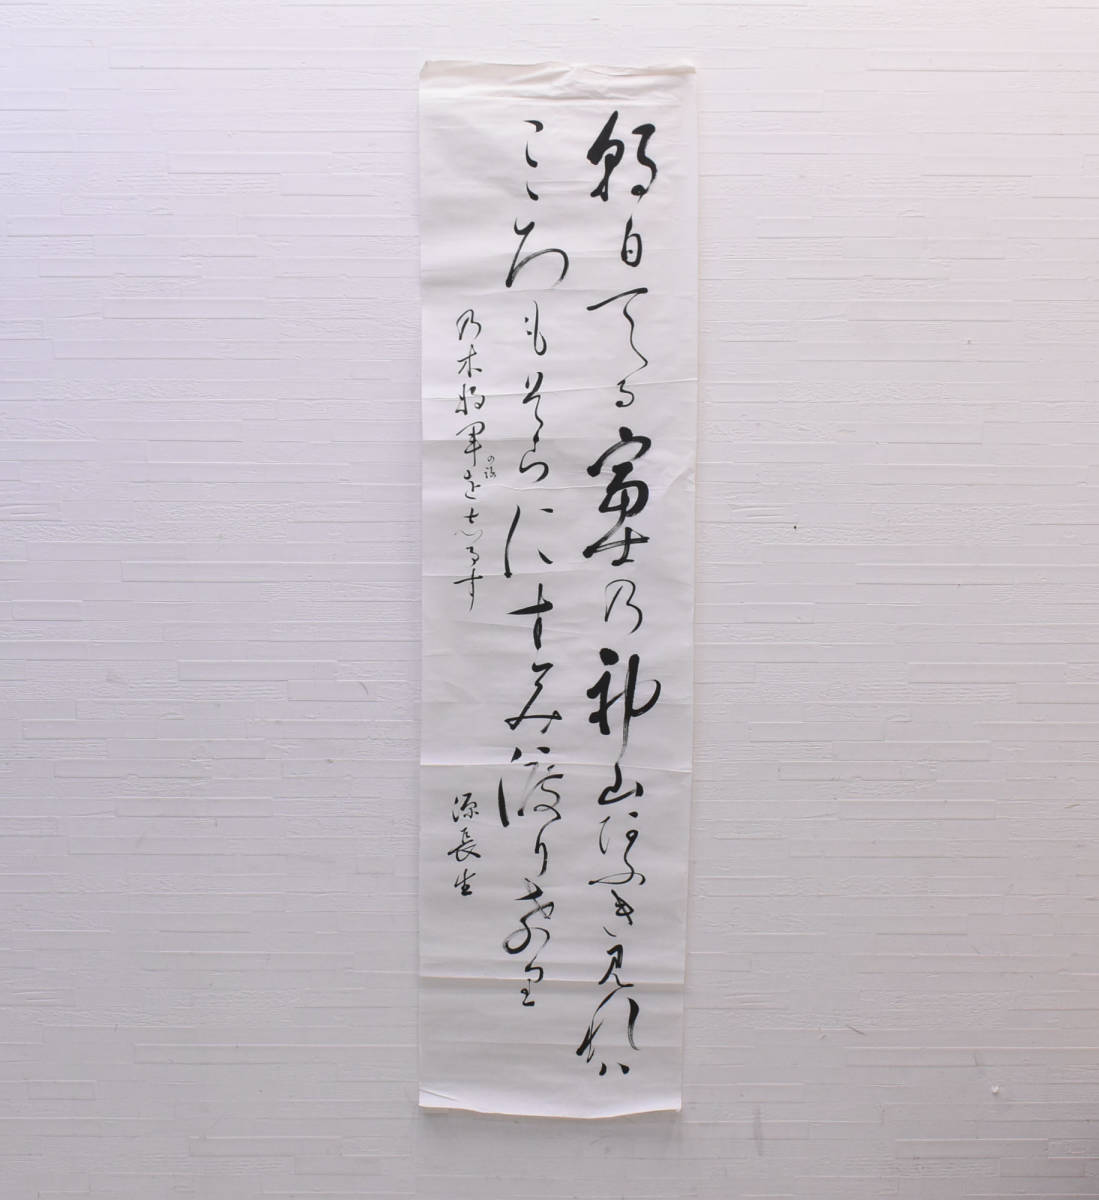 朝日てる富士乃神山あふき見れハ
こころもそらにすみ渡りけり
乃木将軍の詠を志るす
源長生